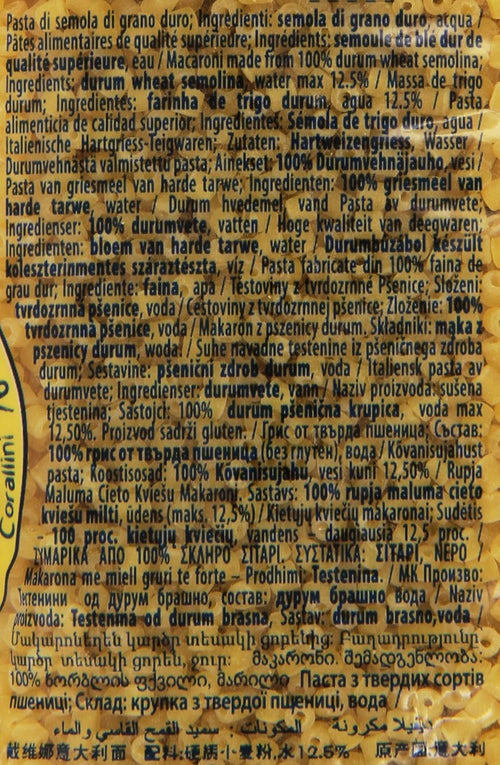 Pasta di semola di grano duro; Ingredienti: semola di grano duro, acqua /
Pâtes alimentaires de qualité supérieure; Ingrédients: semoule de blé dur de
qualité supérieure, eau / Macaroni made from 100% durum wheat semolina;
ingredients: durum wheat semolina, water max 12.5% / Massa de trigo
durum; Ingredientes: farinha de trigo durum, água 12.5% / Pasta
alimenticia de calidad superior; Ingredientes: Sémola de trigo duro, agua /
Italienische Hartgriess-Teigwaren; Zutaten: Hartweizengriess, Wasser /
Durumvehnästä valmistettu pasta; Ainekset: 100% Durumvehnäjauho, vesi /
Pasta van griesmeel van harde tarwe; Ingredienten: 100% griesmeel van
harde tarwe, water / Durum hvedemel, vand Pasta av durumvete;
Ingredienser: 100% durumvete, vatten / Hoge kwaliteit van deegwaren;
ingredienten: bloem van harde tarwe, water / Durumbúzából készült
koleszterinmentes száraztészta, víz / Pasta fabricate din 100% faina de
grau dur; Ingrediente: faina, apa / Těstoviny z tvrdozrnné Pšenice; Složení:
tvrdozrnná pšenice, voda / Cestoviny z tvrdozrnnej pšenice; Zloženie: 100%
tvrdozrnná pšenice, voda / Makaron z pszenicy durum. Składniki: mąka z
pszenicy durum, woda. / Suhe navadne testenine iz pšeničnega zdroba
durum; Sestavine: pšenični zdrob durum, voda / Italiensk pasta av
durumvete; Ingredienser: durumvete, vann / Naziv proizvoda: sušena
tjestenina; Sastojci: 100% durum pšenična krupica, voda max
12,50%. Proizvod sadrži gluten. / Грис от твърда пшеница; Състав:
100% грис от твърда пшеница (без глутен), вода / Kõvanisujahust
pasta; Koostisosad: 100% Kõvanisujahu, vesi kuni 12,50% / Rupja
Maluma Cieto Kviešu Makaroni. Sastavs: 100% rupja maluma cieto
kviešu milti, ūdens (maks. 12,5%) / Kietųjų kviečių makaronai; Sudėtis
- 100 proc. kietųjų kviečių, vandens - daugiausia 12,5 proc. /
ΖΥΜΑΡΙΚΑ ΑΠΟ 100% ΣΚΛΗΡΟ ΣΙΤΑΡΙ. ΣΥΣΤΑΤΙΚΑ: ΣΙΤΑΡΙ, ΝΕΡΟ /
Makarona me miell gruri te forte – Prodhimi: Testenina. / МК Произво:
Тестенини од дурум брашно, состав: дурум брашно вода / Naziv
proizvoda: Testenina od durum brasna, Sastav: durum brasno, voda
Մակարոններեն կարծր տեսակի ցորենից: Բաղադրությունը
կարծր տեսակի ցորեն, ջուր: მაკარონი. შემადგენლობა:
100% ხორბლის ფქვილი, მარილი Паста з твердих сортів
пшениці; Склад: крупка з твердої пшениці, вода /
مكرونة المكونات : سميد القمح القاسي والماء
戴维娜意大利面 配料:硬质小麦粉,水12.5% 原产国:意大利
Corallini 76